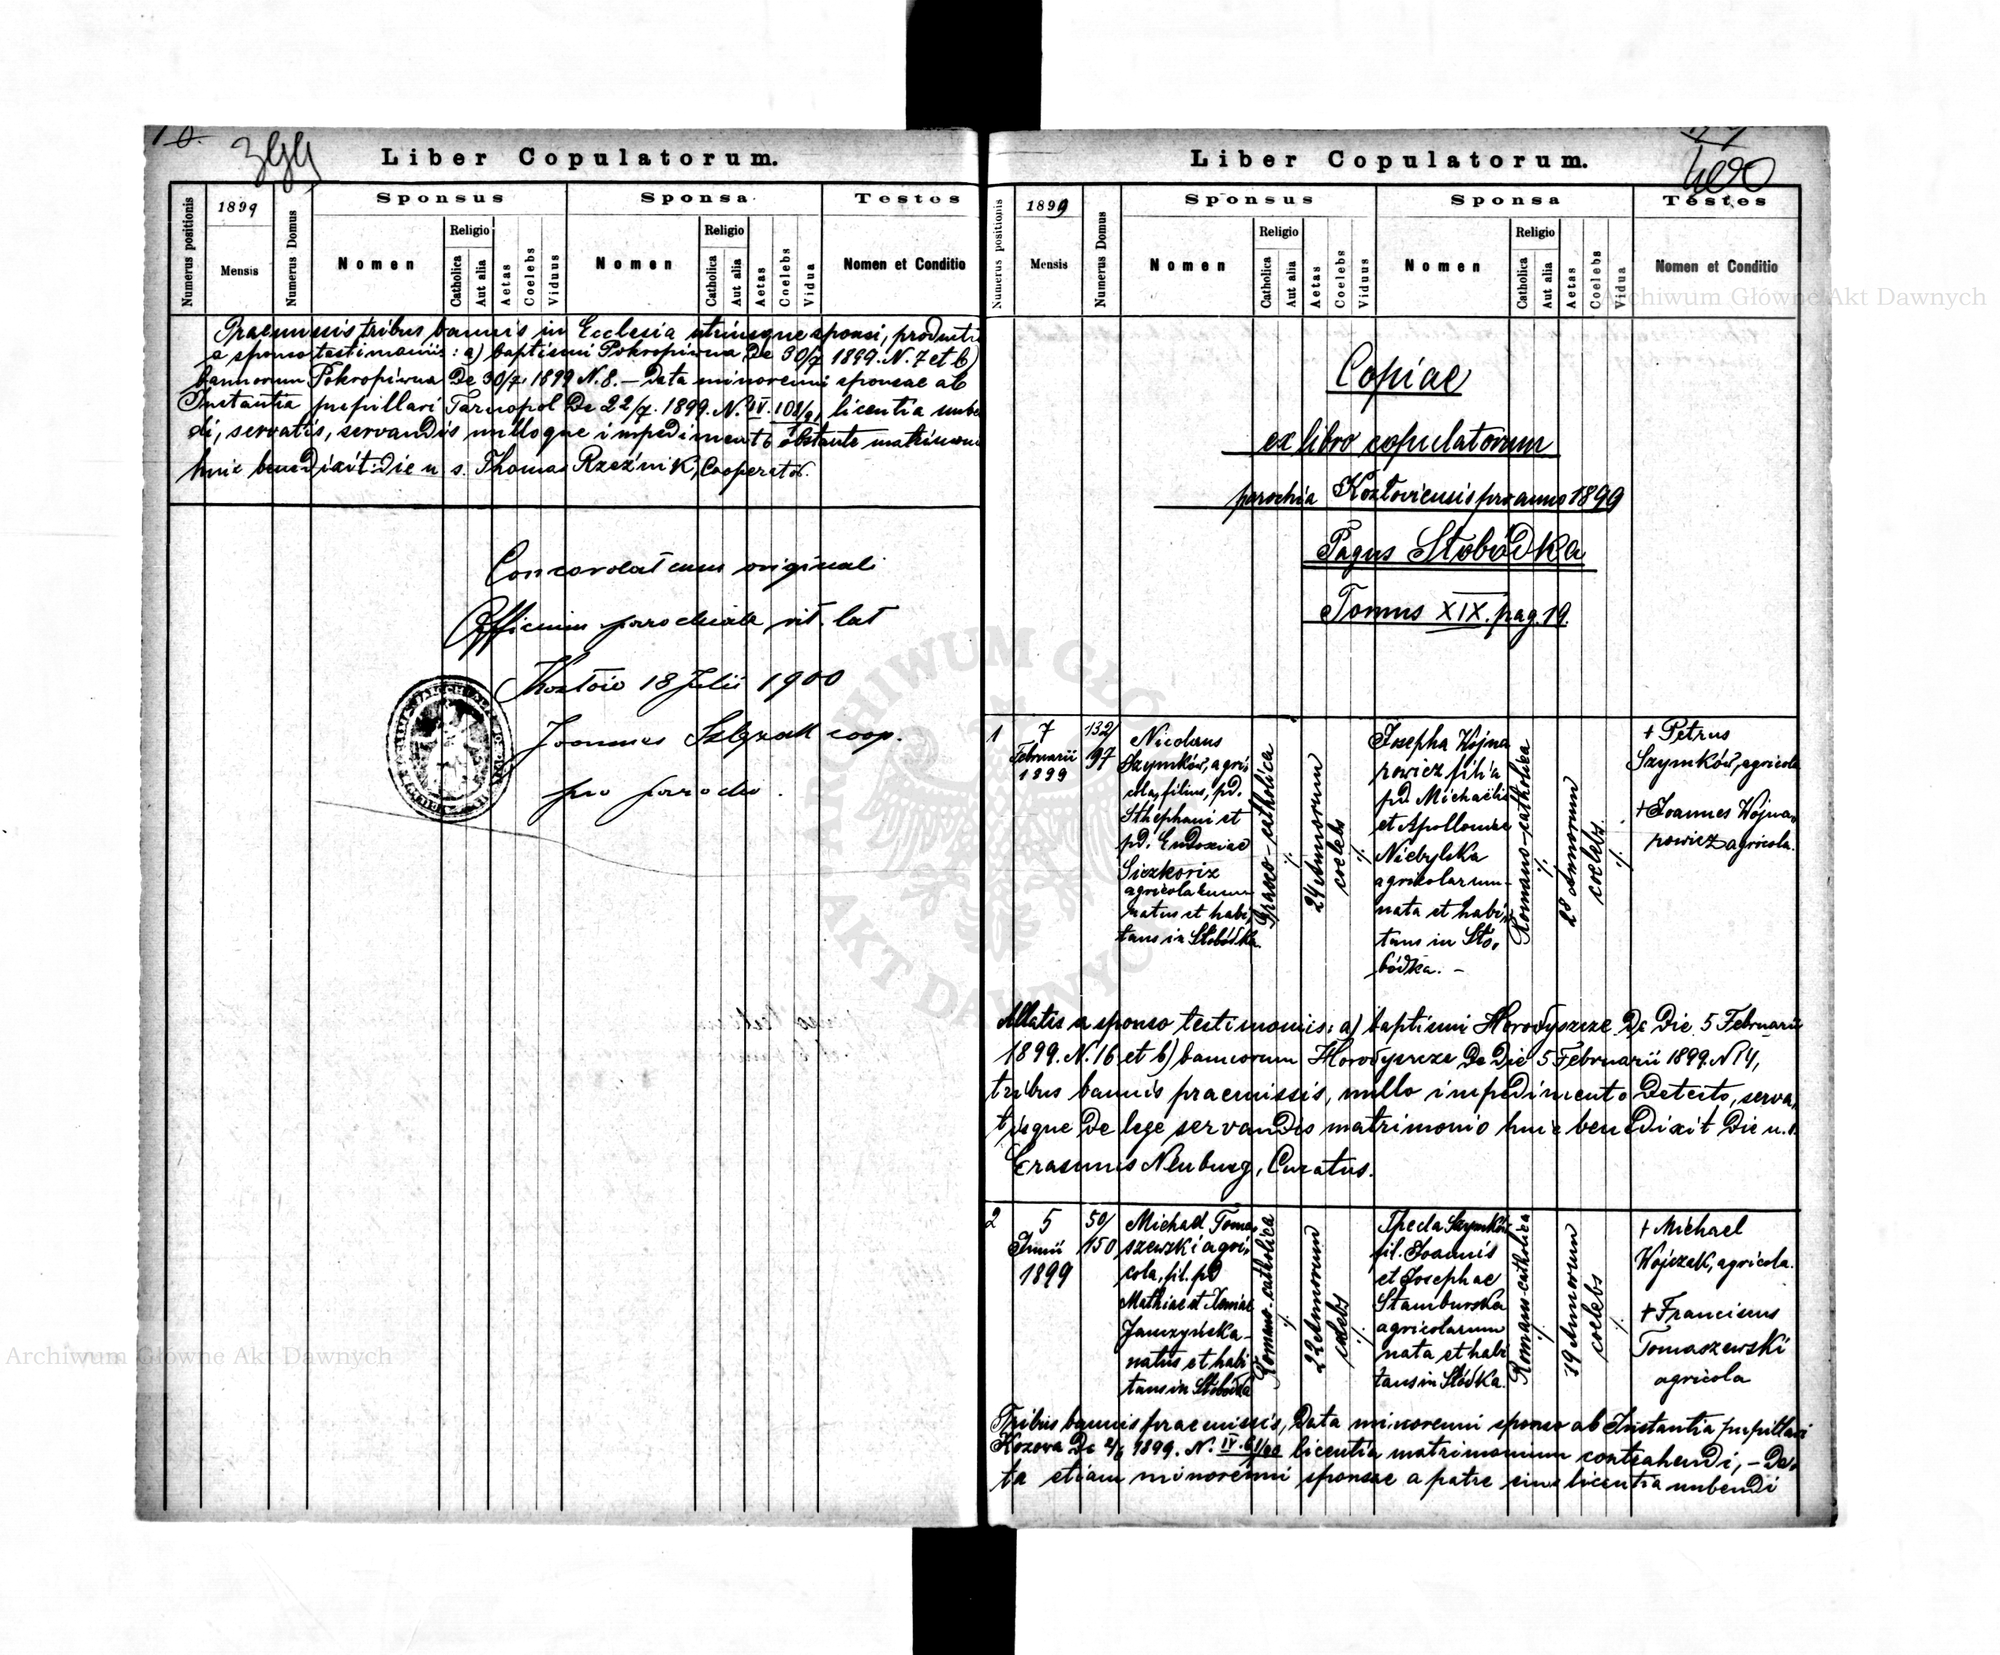 399
Liber Copulatorum.
Numerus positionis
1899
Mensis
Numerus Domus
Sponsus
Nomen
Religio
Catholica
Aut alia
Aetas
Coelebs
Viduus
Sponsa
Nomen
Religio
Catholica
Aut alia
Aetas
Coelebs
Vidua
Testes
Nomen et Conditio
Praemissis tribus bannis in Ecclesia utriusque sponsi, productis
a sponso testimoniis: a) baptismi Pokropiwna De 30/7 1899. N. 7 et b)
bannorum Pokropiwna De 30/7. 1899 N. 8. – Data minorenni sponsae ab
Instantia pupillari Tarnopol De 22/7. 1899. N. IV. licentia nube
di, servatis, servandis nulloque impedimento obstante matrimon
huic benedixit die u. s. Thomas Rzeźnik, Cooperator.
Concordat cum originali
Officium parochiale rit. lat
Kozłów 18 Julii 1900
Joannes coop.
pro parocho.
400
Liber Copulatorum.
Numerus positionis
1899
Mensis
Numerus Domus
Sponsus
Nomen
Religio
Catholica
Aut alia
Aetas
Coelebs
Viduus
Sponsa
Nomen
Religio
Catholica
Aut alia
Aetas
Coelebs
Vidua
Testes
Nomen et Conditio
Archiwum Główne Akt Dawnych
Copiae
ex libro copulatorum
parochia Kozłoviensis pro anno 1899
Pagus Słobódka
Tomus XIX. pag. 19.
1
7
Februarii
1899
132/
97
Nicolaus
Szymków, agri,
cola, filius, pd.
Sthephani et
pd. Eudoxiae
agricolarum
natus et habi,
tans in Słobódka.
Graeco-catholica
./.
24 Annorum
coelebs
./.
Josepha Wojna
rowicz filia
pd. Michaëlis
et Apolloniae
Niebylska
agricolarum
nata et habi,
tans in Sło,
bódka. –
Romano-catholica
./.
28 Annorum
coelebs.
./.
+ Petrus
Szymków, agricola
+ Joannes Wojna,
rowicz agricola.
Allatis a sponso testimoniis: a) baptismi Horodyszcze De Die 5 Februarii
1899. N. 16 et b) bannorum Horodyszcze De Die 5 Februarii 1899. N 14,
tribus bannis praemissis, nullo impedimento Detecto, serva,
tisque De lege servandis matrimonio huic benedixit Die u. s.
Erasmus Neuburg, Curatus.
2
5
Junii
1899
50/
150
Michael Toma,
szewski agri,
cola, fil. pd
Mathiae et Xeniae
Janczyńska –
natus et habi
tans in Słobódka
Romano-catholica
./.
22 Annorum
celebs
./.
Thecla Szymków
fil. Joannis
et Josephae
Stamburska
agricolarum
nata et habi
tans in Słódka.
Romano-catholica
./.
19 Annorum
coelebs
./.
+ Michael
Wojczak, agricola.
+ Franciscus
Tomaszewski
agricola
Tribus bannis praemissis, Data minorenni sponso ab Instantia pupillari
Kozova De 1899. N. IV. licentia matrimonium contrahendi, – Da,
ta etiam minorenni sponsae a patre eius licentia nubendi
Archiwum Główne Akt Dawnych
ARCHIWUM GŁÓ
AKT DAWNYC